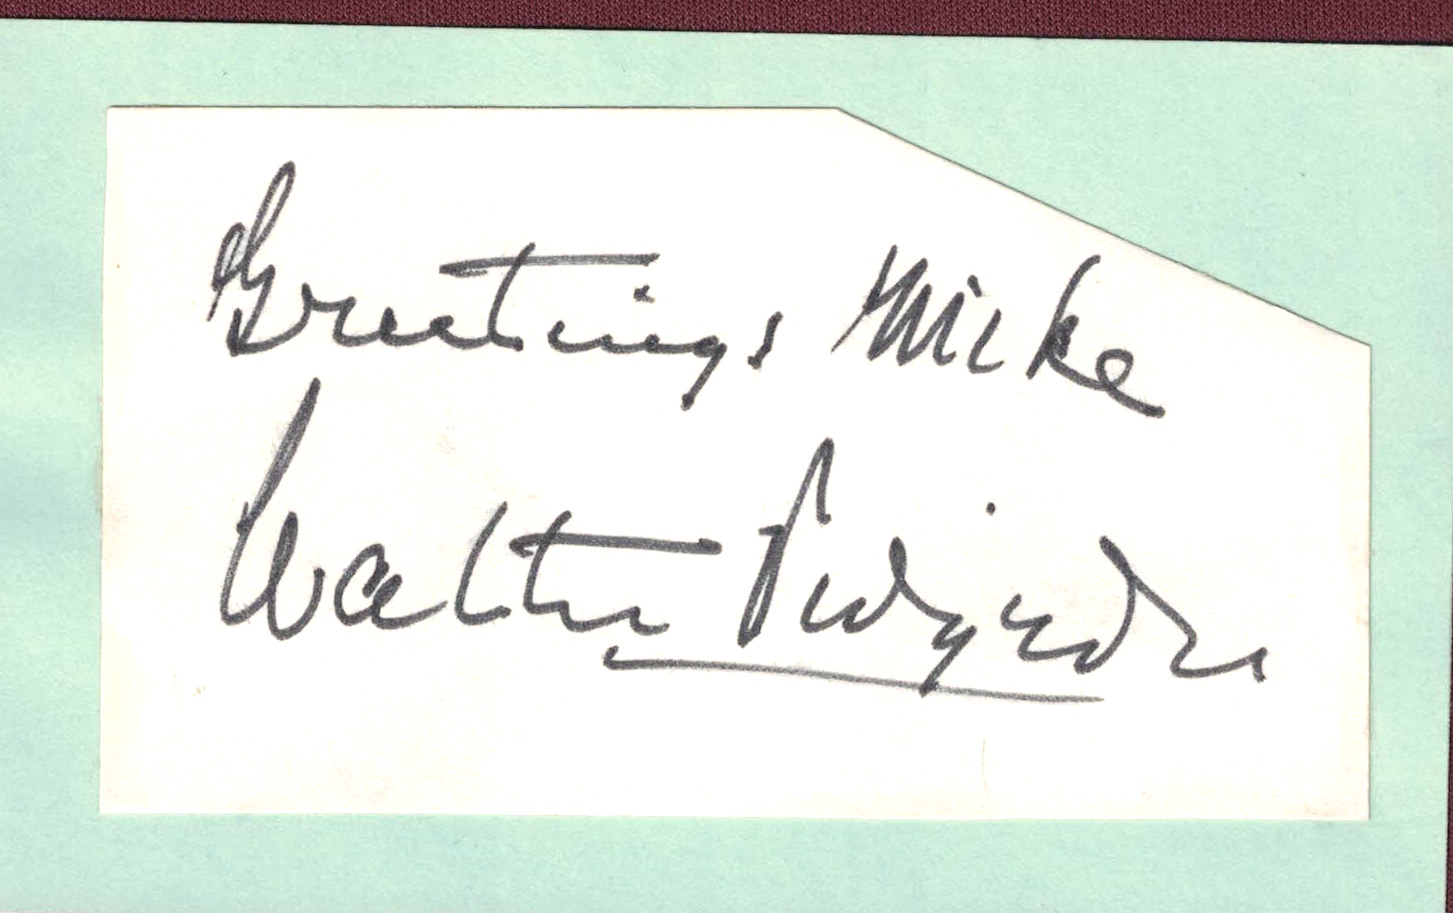 Greetings Mike
Walter Pidgeon